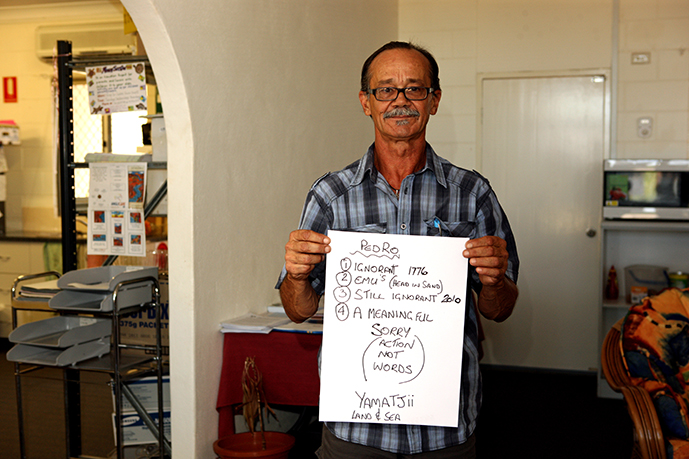 PEDRO
1 IGNORANT 1776
2 EMU'S (HEAD IN SAND)
3 STILL IGNORANT 2010
4 A MEANINGFUL
SORRY
(ACTION
NOT
WORDS)
YAMATJii
LAND & SEA